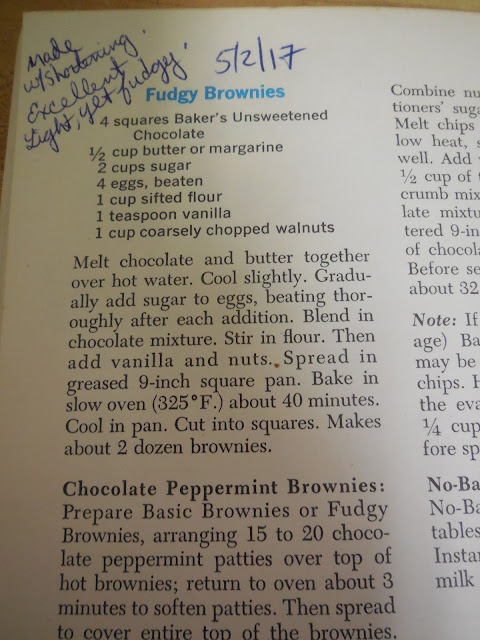 made
w/shortening.
Excellent
Light, yet fudgy!
5/2/17
Fudgy Brownies
4 squares Baker's Unsweetened
Chocolate
½ cup butter or margarine
2 cups sugar
4 eggs, beaten
1 cup sifted flour
1 teaspoon vanilla
1 cup coarsely chopped walnuts
Melt chocolate and butter together
over hot water. Cool slightly. Gradu-
ally add sugar to eggs, beating thor-
oughly after each addition. Blend in
chocolate mixture. Stir in flour. Then
add vanilla and nuts. Spread in
greased 9-inch square pan. Bake in
slow oven (325°F.) about 40 minutes.
Cool in pan. Cut into squares. Makes
about 2 dozen brownies.
Chocolate Peppermint Brownies:
Prepare Basic Brownies or Fudgy
Brownies, arranging 15 to 20 choco-
late peppermint patties over top of
hot brownies; return to oven about 3
minutes to soften patties. Then spread
to cover entire top of the brownies.
Combine nu
tioners' suga
Melt chips
low heat, s
well. Add
½ cup of t
crumb mix
late mixtu
tered 9-in
of chocola
Before se
about 32
Note: If
age) Ba
may be
chips. H
the eva
¼ cup
fore sp
No-Ba
No-Ba
tables
Instan
milk